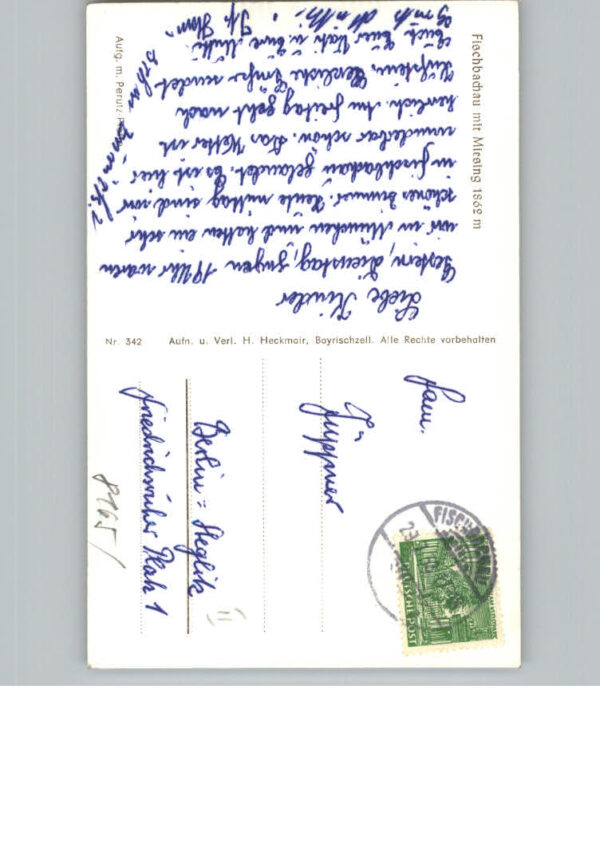 Fischbachau mit Miesing 1862 m
Liebe Kinder
Gestern, Dienstag, gegen 19 Uhr waren
wir in München und hatten ein sehr
schönes Zimmer. Heute mittag sind wir
in Fischbachau gelandet. Es ist hier
wunderbar schön. Das Wetter ist
herrlich. Am Freitag geht nach
Kufstein. Herzliche Grüße sendet
Euch Euer Vati u. Eure Mutti
Aufg. m. Perutz
Nr. 342 Aufn. u. Verl. H. Heckmair, Bayrischzell. Alle Rechte vorbehalten
Fam.
Jüppner
Berlin = Steglitz
Friedrichsruher Platz 1
8165/
FISCHBACHAU
DEUTSCHE POST